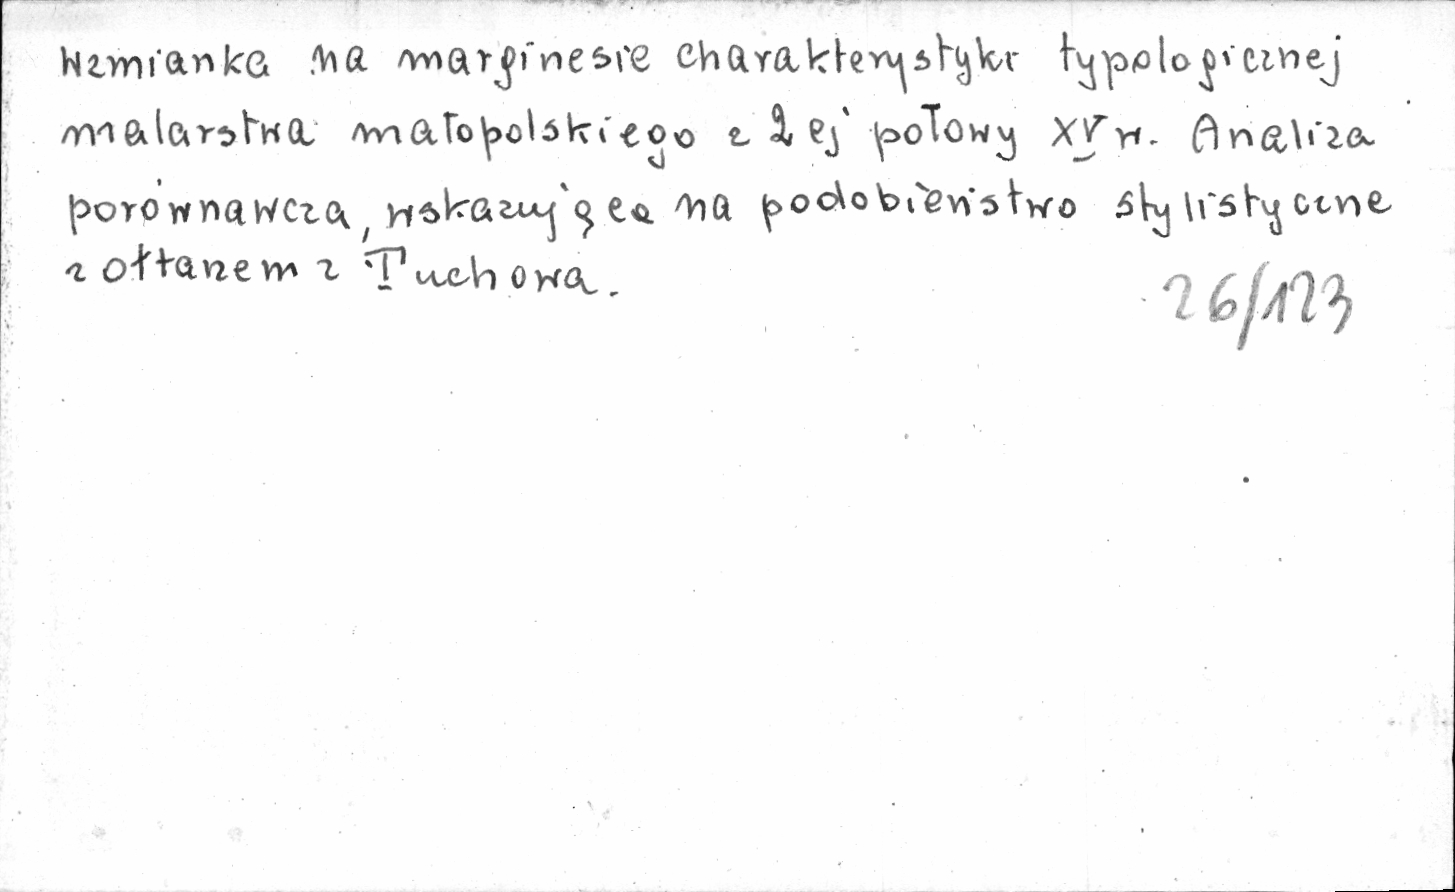 Wzmianka na marginesie charakterystyki typologicznej
malarstwa małopolskiego z 2 ej połowy XV w. Analiza
porównawcza, wskazująca na podobieństwo stylistyczne
z ołtarzem z Tuchowa.
26/123